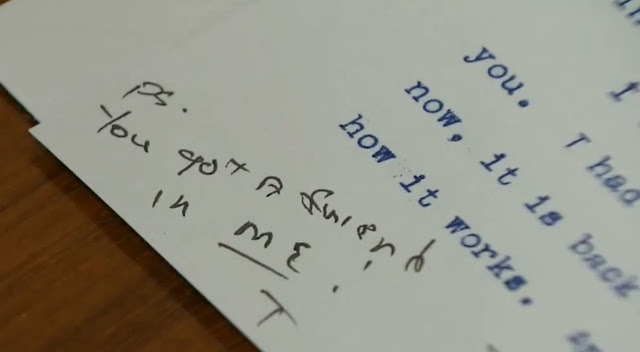 PS.
You got A friend
in ME!
T
you. I
now, it is back
how it works.
T had